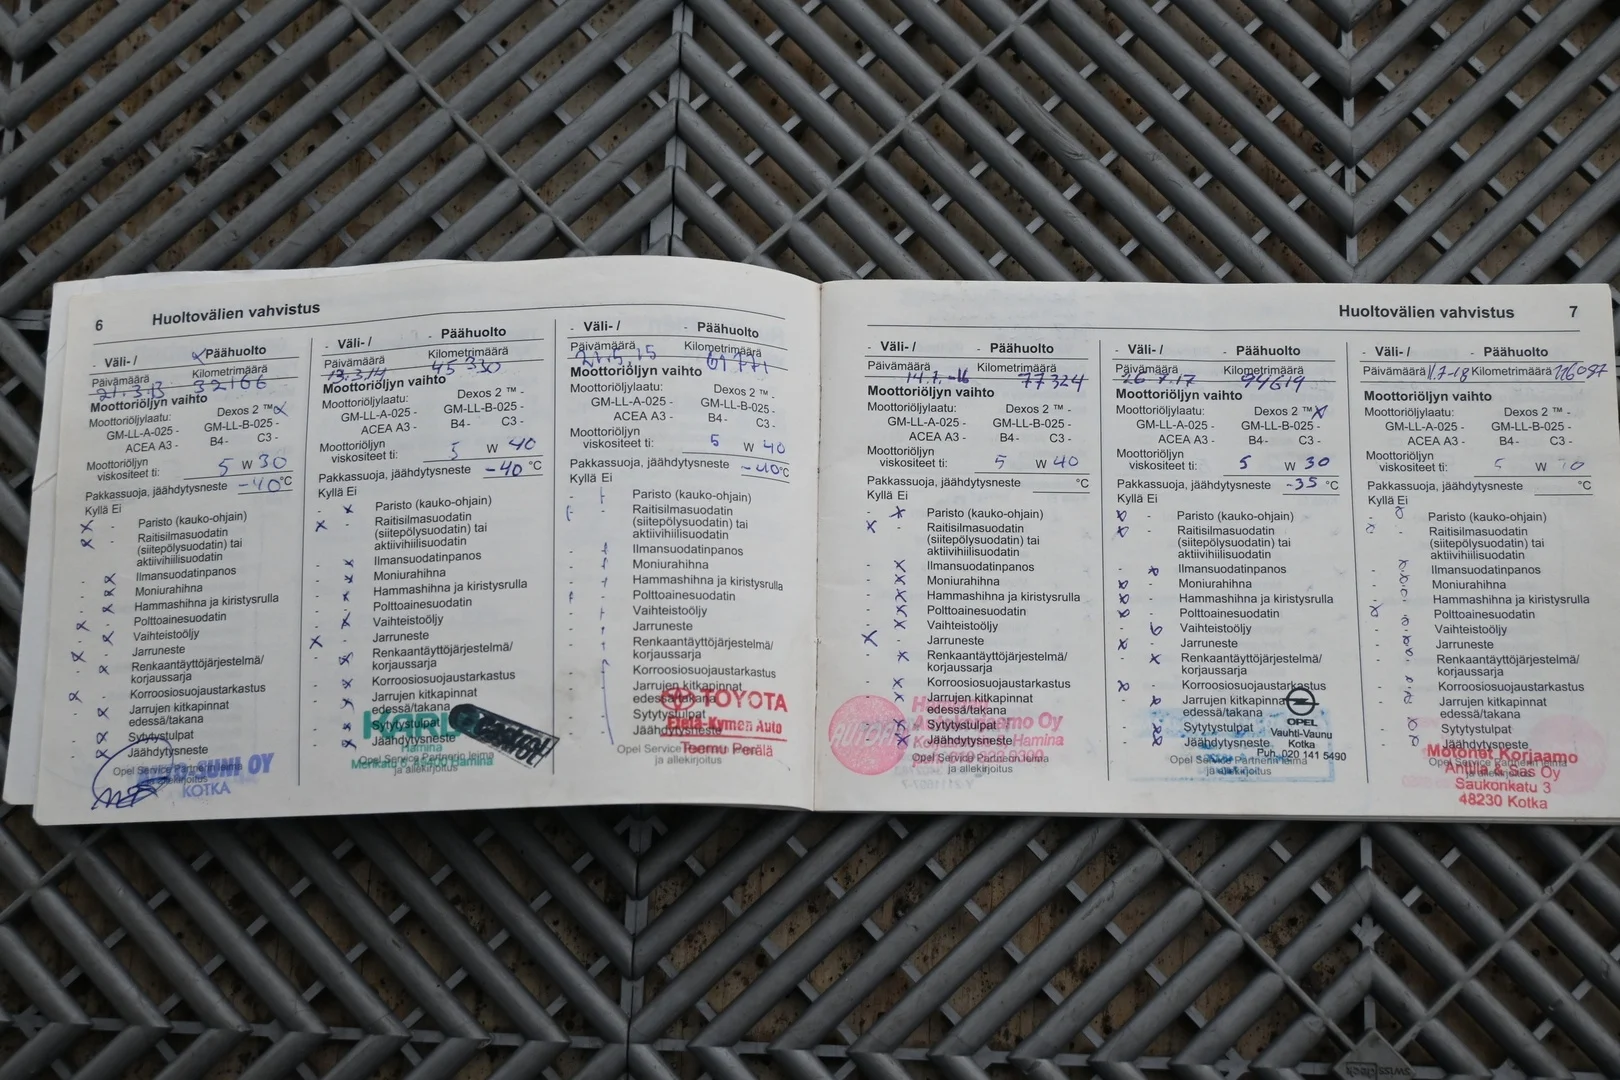 6 Huoltovälien vahvistus
- Väli- / Päähuolto
Päivämäärä Kilometrimäärä
21.3.13 32166
Moottoriöljyn vaihto
Moottoriöljylaatu: Dexos 2 ™ x
GM-LL-A-025 - GM-LL-B-025 -
ACEA A3 - B4- C3 -
Moottoriöljyn
viskositeet ti: 5 W 30
Pakkassuoja, jäähdytysneste -40 °C
Kyllä Ei
x - Paristo (kauko-ohjain)
x - Raitisilmasuodatin
(siitepölysuodatin) tai
aktiivihiilisuodatin
- x Ilmansuodatinpanos
- x Moniurahihna
- x Hammashihna ja kiristysrulla
x - Polttoainesuodatin
- x Vaihteistoöljy
x - Jarruneste
- x Renkaantäyttöjärjestelmä/
korjaussarja
x - Korroosiosuojaustarkastus
- x Jarrujen kitkapinnat
edessä/takana
- x Sytytystulpat
- x Jäähdytysneste
Opel Service Partnerin leima
ja allekirjoitus
SUNI OY
KOTKA
- Väli- / - Päähuolto
Päivämäärä Kilometrimäärä
13.3.14 45330
Moottoriöljyn vaihto
Moottoriöljylaatu: Dexos 2 ™ -
GM-LL-A-025 - GM-LL-B-025 -
ACEA A3 - B4- C3 -
Moottoriöljyn
viskositeet ti: 5 W 40
Pakkassuoja, jäähdytysneste -40 °C
Kyllä Ei
- x Paristo (kauko-ohjain)
x - Raitisilmasuodatin
(siitepölysuodatin) tai
aktiivihiilisuodatin
- x Ilmansuodatinpanos
- x Moniurahihna
- x Hammashihna ja kiristysrulla
- x Polttoainesuodatin
- x Vaihteistoöljy
x - Jarruneste
- x Renkaantäyttöjärjestelmä/
korjaussarja
- x Korroosiosuojaustarkastus
- x Jarrujen kitkapinnat
edessä/takana
- x Sytytystulpat
- x Jäähdytysneste
Opel Service Partnerin leima
ja allekirjoitus
Hamina
Hamina
- Väli- / - Päähuolto
Päivämäärä Kilometrimäärä
21.5.15 61771
Moottoriöljyn vaihto
Moottoriöljylaatu: Dexos 2 ™ -
GM-LL-A-025 - GM-LL-B-025 -
ACEA A3 - B4- C3 -
Moottoriöljyn
viskositeet ti: 5 W 40
Pakkassuoja, jäähdytysneste -40 °C
Kyllä Ei
Paristo (kauko-ohjain)
Raitisilmasuodatin
(siitepölysuodatin) tai
aktiivihiilisuodatin
Ilmansuodatinpanos
Moniurahihna
Hammashihna ja kiristysrulla
Polttoainesuodatin
Vaihteistoöljy
Jarruneste
Renkaantäyttöjärjestelmä/
korjaussarja
Korroosiosuojaustarkastus
Jarrujen kitkapinnat
edessä/takana
Sytytystulpat
Jäähdytysneste
Opel Service Partnerin leima
ja allekirjoitus
TOYOTA
Etelä-Kymen Auto
Teemu Perälä
Huoltovälien vahvistus 7
- Väli- / - Päähuolto
Päivämäärä Kilometrimäärä
77324
Moottoriöljyn vaihto
Moottoriöljylaatu: Dexos 2 ™ -
GM-LL-A-025 - GM-LL-B-025 -
ACEA A3 - B4- C3 -
Moottoriöljyn
viskositeet ti: 5 W 40
Pakkassuoja, jäähdytysneste °C
Kyllä Ei
- x Paristo (kauko-ohjain)
x - Raitisilmasuodatin
(siitepölysuodatin) tai
aktiivihiilisuodatin
- x Ilmansuodatinpanos
- x Moniurahihna
- x Hammashihna ja kiristysrulla
- x Polttoainesuodatin
- x Vaihteistoöljy
x - Jarruneste
- x Renkaantäyttöjärjestelmä/
korjaussarja
- x Korroosiosuojaustarkastus
- x Jarrujen kitkapinnat
edessä/takana
- x Sytytystulpat
- x Jäähdytysneste
Opel Service Partnerin leima
ja allekirjoitus
Oy
Hamina
- Väli- / - Päähuolto
Päivämäärä Kilometrimäärä
26.7.17 94619
Moottoriöljyn vaihto
Moottoriöljylaatu: Dexos 2 ™ x
GM-LL-A-025 - GM-LL-B-025 -
ACEA A3 - B4- C3 -
Moottoriöljyn
viskositeet ti: 5 W 30
Pakkassuoja, jäähdytysneste -35 °C
Kyllä Ei
x - Paristo (kauko-ohjain)
x - Raitisilmasuodatin
(siitepölysuodatin) tai
aktiivihiilisuodatin
- x Ilmansuodatinpanos
x - Moniurahihna
x - Hammashihna ja kiristysrulla
x - Polttoainesuodatin
- x Vaihteistoöljy
x - Jarruneste
- x Renkaantäyttöjärjestelmä/
korjaussarja
x - Korroosiosuojaustarkastus
- x Jarrujen kitkapinnat
edessä/takana
- x Sytytystulpat
- x Jäähdytysneste
Opel Service Partnerin leima
ja allekirjoitus
OPEL
Vauhti-Vaunu
Kotka
Puh. 020 141 5490
- Väli- / - Päähuolto
Päivämäärä 11.7-18 Kilometrimäärä 126097
Moottoriöljyn vaihto
Moottoriöljylaatu: Dexos 2 ™ -
GM-LL-A-025 - GM-LL-B-025 -
ACEA A3 - B4- C3 -
Moottoriöljyn
viskositeet ti: 5 W
Pakkassuoja, jäähdytysneste °C
Kyllä Ei
- x Paristo (kauko-ohjain)
x - Raitisilmasuodatin
(siitepölysuodatin) tai
aktiivihiilisuodatin
- x Ilmansuodatinpanos
- x Moniurahihna
- x Hammashihna ja kiristysrulla
x - Polttoainesuodatin
- x Vaihteistoöljy
- x Jarruneste
- x Renkaantäyttöjärjestelmä/
korjaussarja
- x Korroosiosuojaustarkastus
- x Jarrujen kitkapinnat
edessä/takana
- x Sytytystulpat
- x Jäähdytysneste
Opel Service Partnerin leima
ja allekirjoitus
Motonet Korjaamo
Anttila & Sas Oy
Saukonkatu 3
48230 Kotka